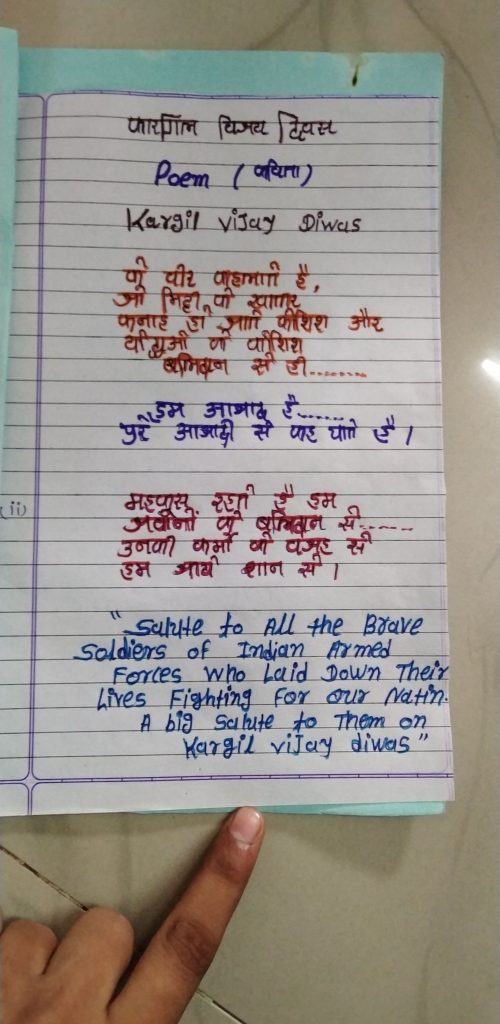 कारगिल विजय दिवस
Poem (कविता)
Kargil Vijay Diwas
वो वीर कहलाते है,
जो मिट्टी की खातिर
फनाह हो जाते कोशिश और
की कोशिश
बलिदान से ही........
हम आजाद है......
पुरे आजादी से कह पाते है।
महफूस रहते है हम
जवानों के बलिदान से.....
उनकी कर्मो की वजह से
हम जीये शान से।
(ii)
"Salute to All the Brave
Soldiers of Indian Armed
Forces Who Laid Down Their
Lives Fighting For our Natin.
A big Salute to Them on
Kargil vijay diwas"